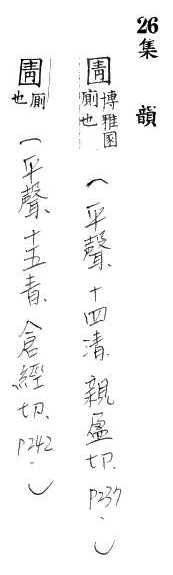 26集韻
圊博雅圂廁也(平聲、十四清、親盈切、P237.)
圊廁也(平聲、十五青、倉經切、P242.)